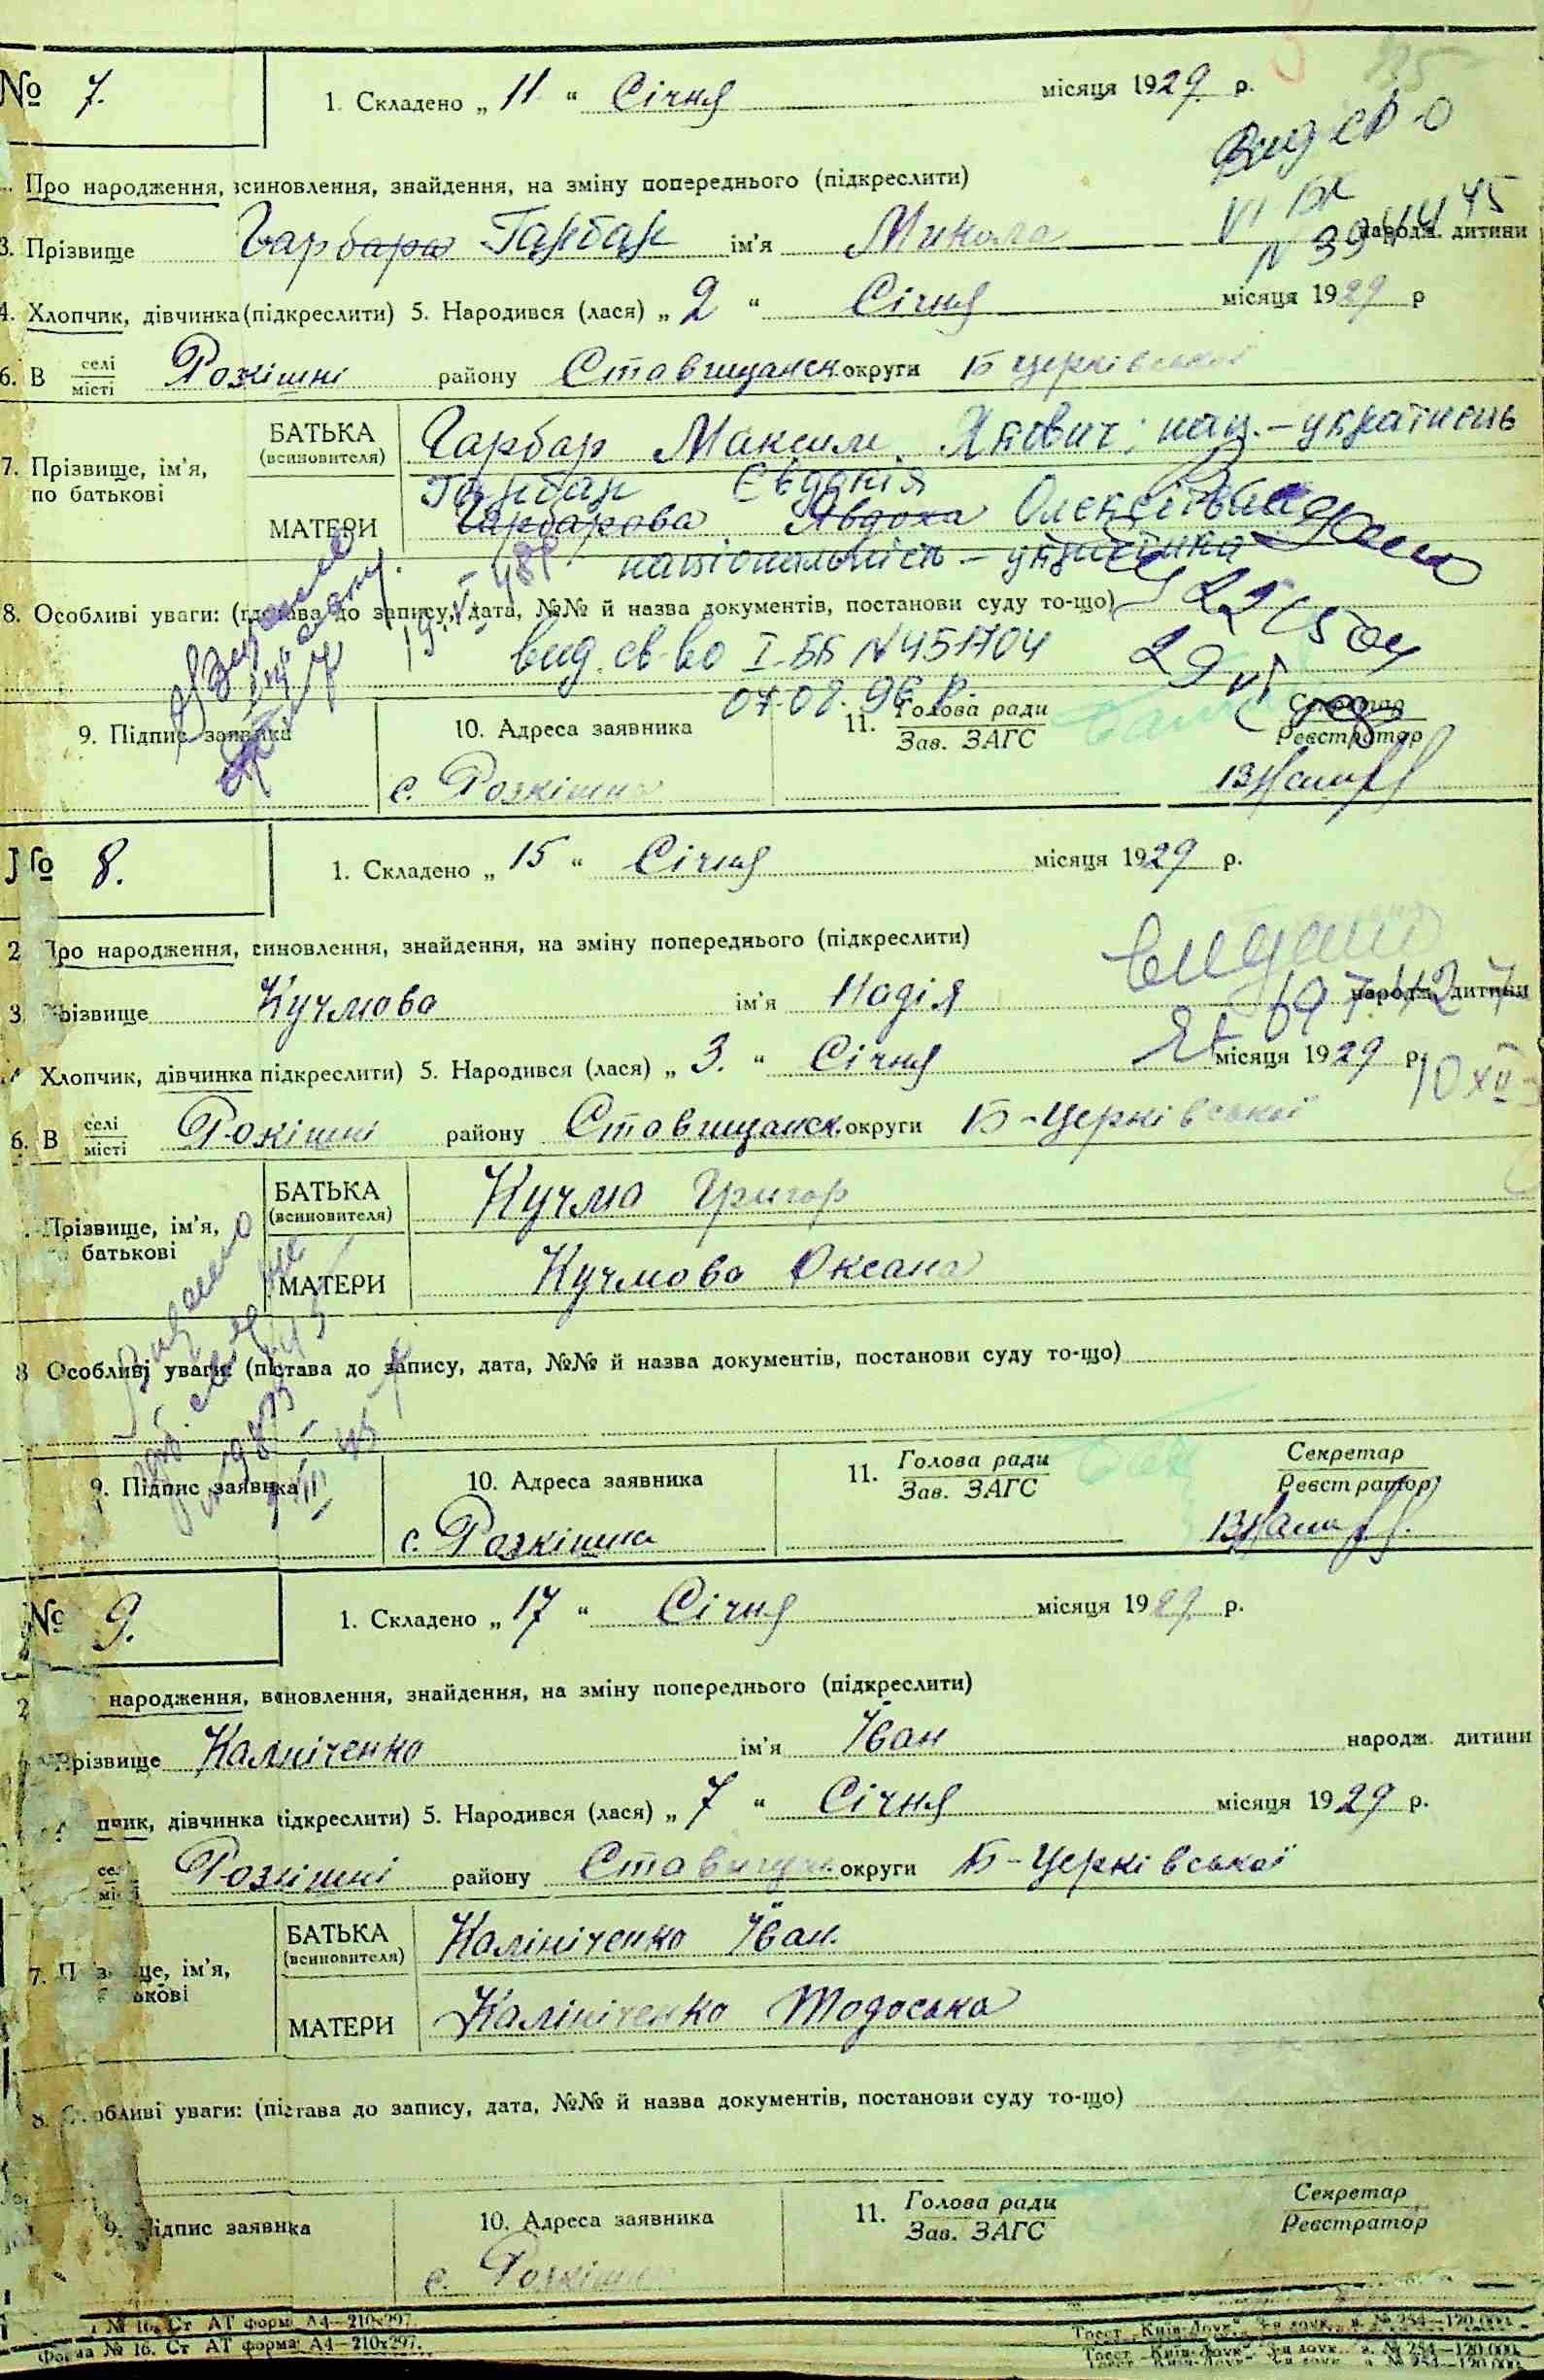 № 7. 1. Складено „ 11 “ Січня місяця 1929 р.
Вид св-о
Про народження, всиновлення, знайдення, на зміну попереднього (підкреслити)
3. Прізвище Гарбара Гарбар ім'я Микола народж. дитини
4. Хлопчик, дівчинка (підкреслити) 5. Народився (лася) „ 2 “ Січня місяця 1929 р
6. В селі місті Розкішні району Ставищанск. округи Б церківської
7. Прізвище, ім'я, по батькові
БАТЬКА (всиновителя) Гарбар Максим Якович; нац. – українець
Гарбар Євдокія
МАТЕРИ Гарбарова Явдоха Олексіївна
національність – українка
8. Особливі уваги: (підстава до запису, дата, №№ й назва документів, постанови суду то-що)
вид. св-во I-ББ N 451704
07.08.96 р.
9. Підпис заявника 10. Адреса заявника 11. Голова ради Зав. ЗАГС Секретар Реєстратор
с. Розкішна
№ 8. 1. Складено „ 15 “ Січня місяця 1929 р.
2 Про народження, всиновлення, знайдення, на зміну попереднього (підкреслити)
видано
3. Прізвище Кучмова ім'я Надія народж. дитини
Хлопчик, дівчинка підкреслити) 5. Народився (лася) „ 3. “ Січня місяця 1929 р.
10 XII
6. В селі місті Розкішні району Ставищанск. округи Б-Церківської
Прізвище, ім'я, батькові
БАТЬКА (всиновителя) Кучма Григор
МАТЕРИ Кучмова Оксана
8 Особливі уваги: (підстава до запису, дата, №№ й назва документів, постанови суду то-що)
9. Підпис заявника 10. Адреса заявника 11. Голова ради Зав. ЗАГС Секретар Реєстратор
с. Розкішна
№ 9. 1. Складено „ 17 “ Січня місяця 1929 р.
2 народження, всиновлення, знайдення, на зміну попереднього (підкреслити)
Прізвище Калініченко ім'я Іван народж. дитини
пчик, дівчинка підкреслити) 5. Народився (лася) „ 7 “ Січня місяця 1929 р.
селі місті Розкішні району Ставищ. округи Б-Церківської
7. Прізвище, ім'я, батькові
БАТЬКА (всиновителя) Калініченко Іван.
МАТЕРИ Калініченко Тодоська
8. Особливі уваги: (підстава до запису, дата, №№ й назва документів, постанови суду то-що)
9. Підпис заявника 10. Адреса заявника 11. Голова ради Зав. ЗАГС Секретар Реєстратор
с. Розкішна
№ 16. Ст АТ форма А4—210х297.
Форма № 16. Ст АТ форма А4—210х297. Трест „Київ-Друк“ № 254—120.000.